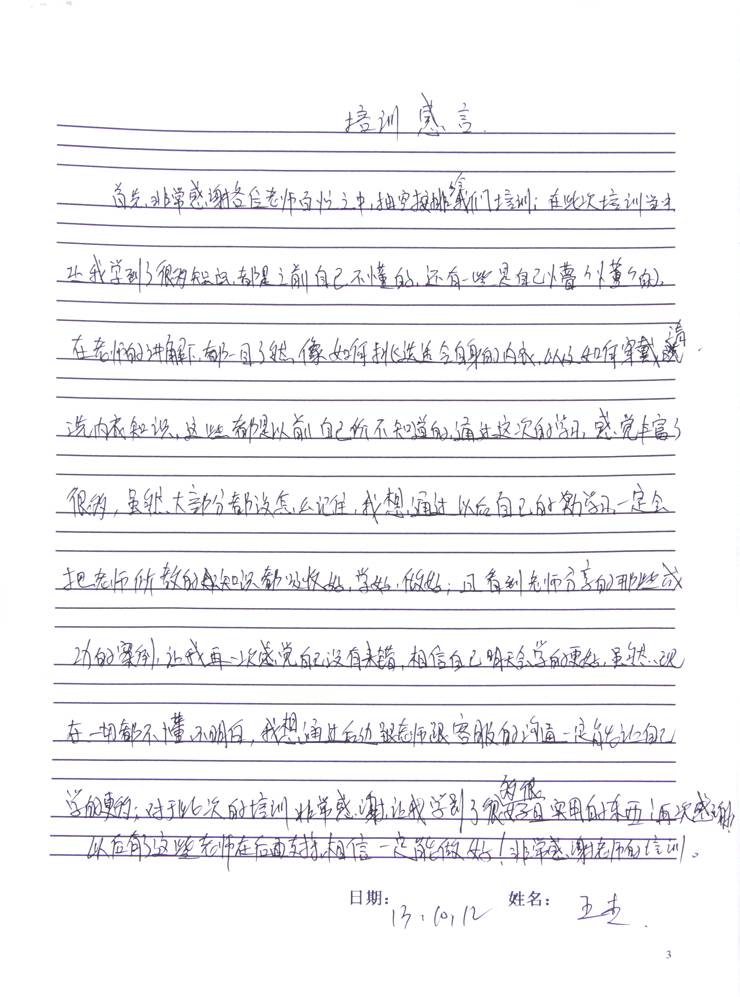 培训感言
首先,非常感谢各位老师百忙之中,抽空安排给我们培训;在此次培训当中
让我学到了很多知识,都是之前自己不懂的,还有一些是自己似懂个似懂个的,
在老师的讲解下,都一目了然,像如何挑选适合自身的内衣,以及如何穿戴清
洗内衣知识,这些都是以前自己不知道的,通过这次的学习,感觉丰富了
很多,虽然,大部分都没怎么记住,我想,通过以后自己的勤学习一定会
把老师所教的知识都吸收好,学好,做好;且看到老师分享的那些成
功的案例,让我再一次感觉自己没有来错,相信自己明天会学的更好,虽然,现
在一切都不懂,不明白,我想,通过后边跟老师跟客服的沟通一定能让自己
学的更多;对于此次的培训非常感谢,让我学到了很多很实用的东西,再次感谢,
以后有了这些老师在后面支持,相信一定能做好!非常感谢老师的培训。
日期:13.10.12 姓名:王杰
3